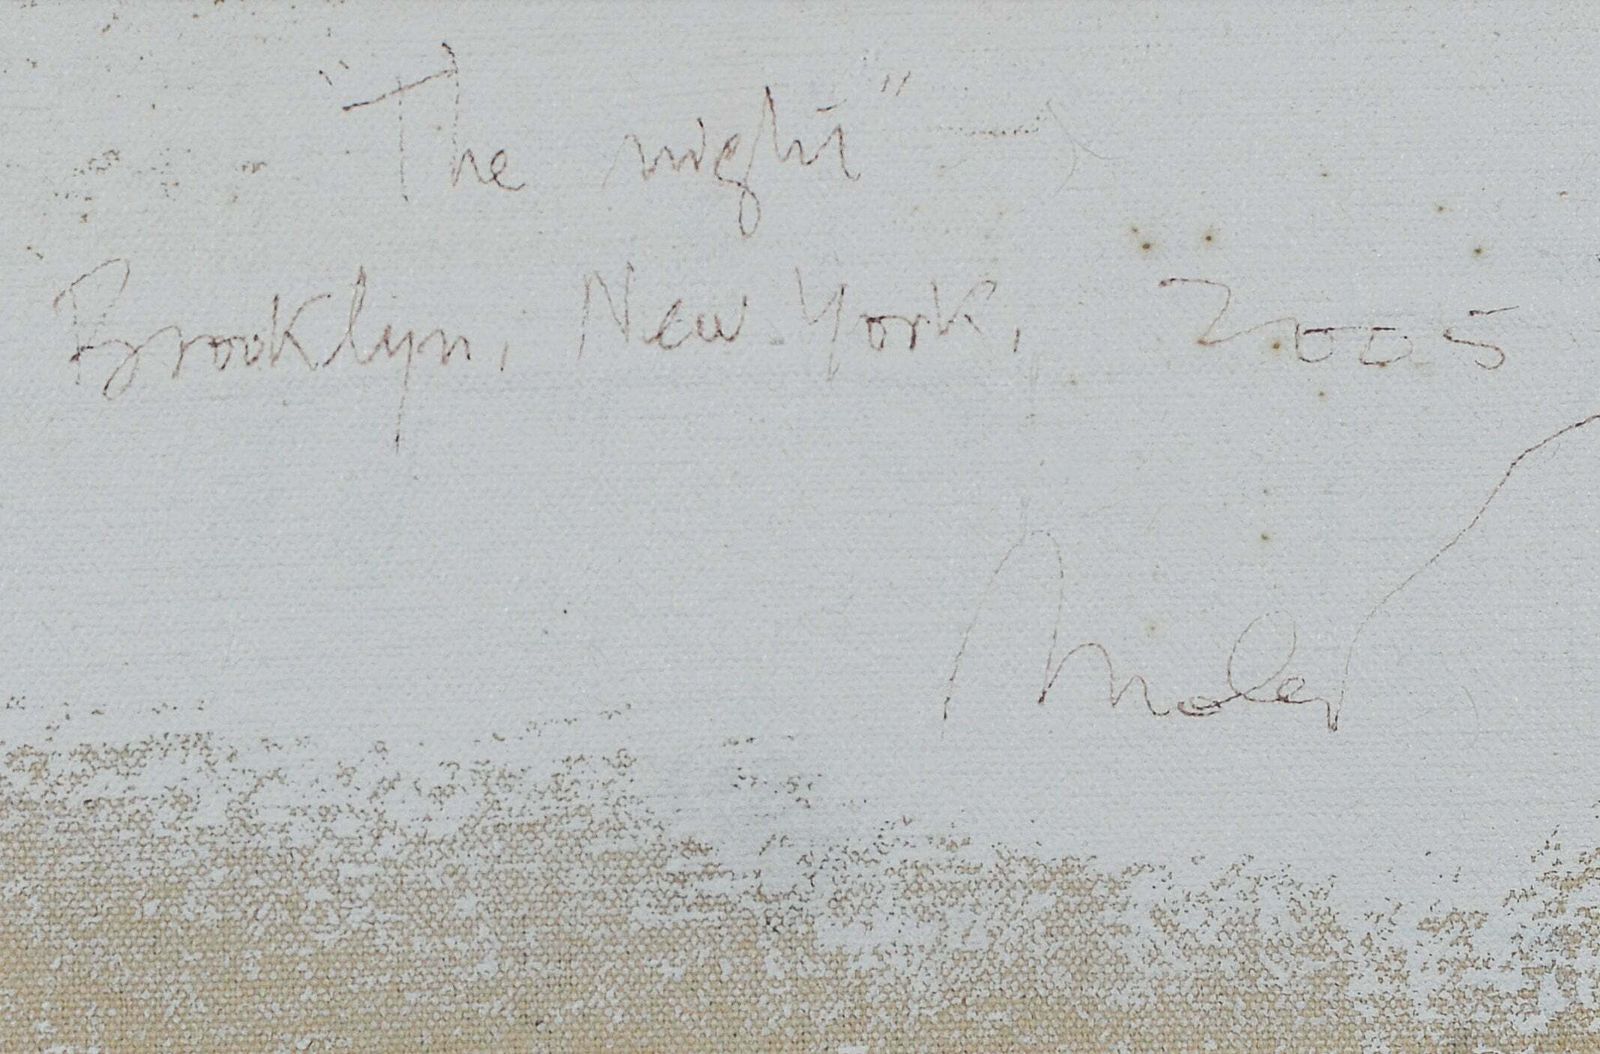 "The night"
Brooklyn, New York, 2005